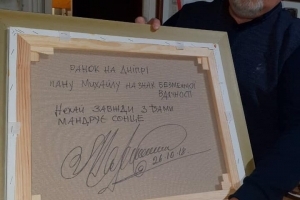 РАНОК НА ДНІПРІ
ПАНУ МИХАЙЛУ НА ЗНАК БЕЗМЕЖНОЇ
ВДЯЧНОСТІ
НЕХАЙ ЗАВЖДИ З ВАМИ
МАНДРУЄ СОНЦЕ